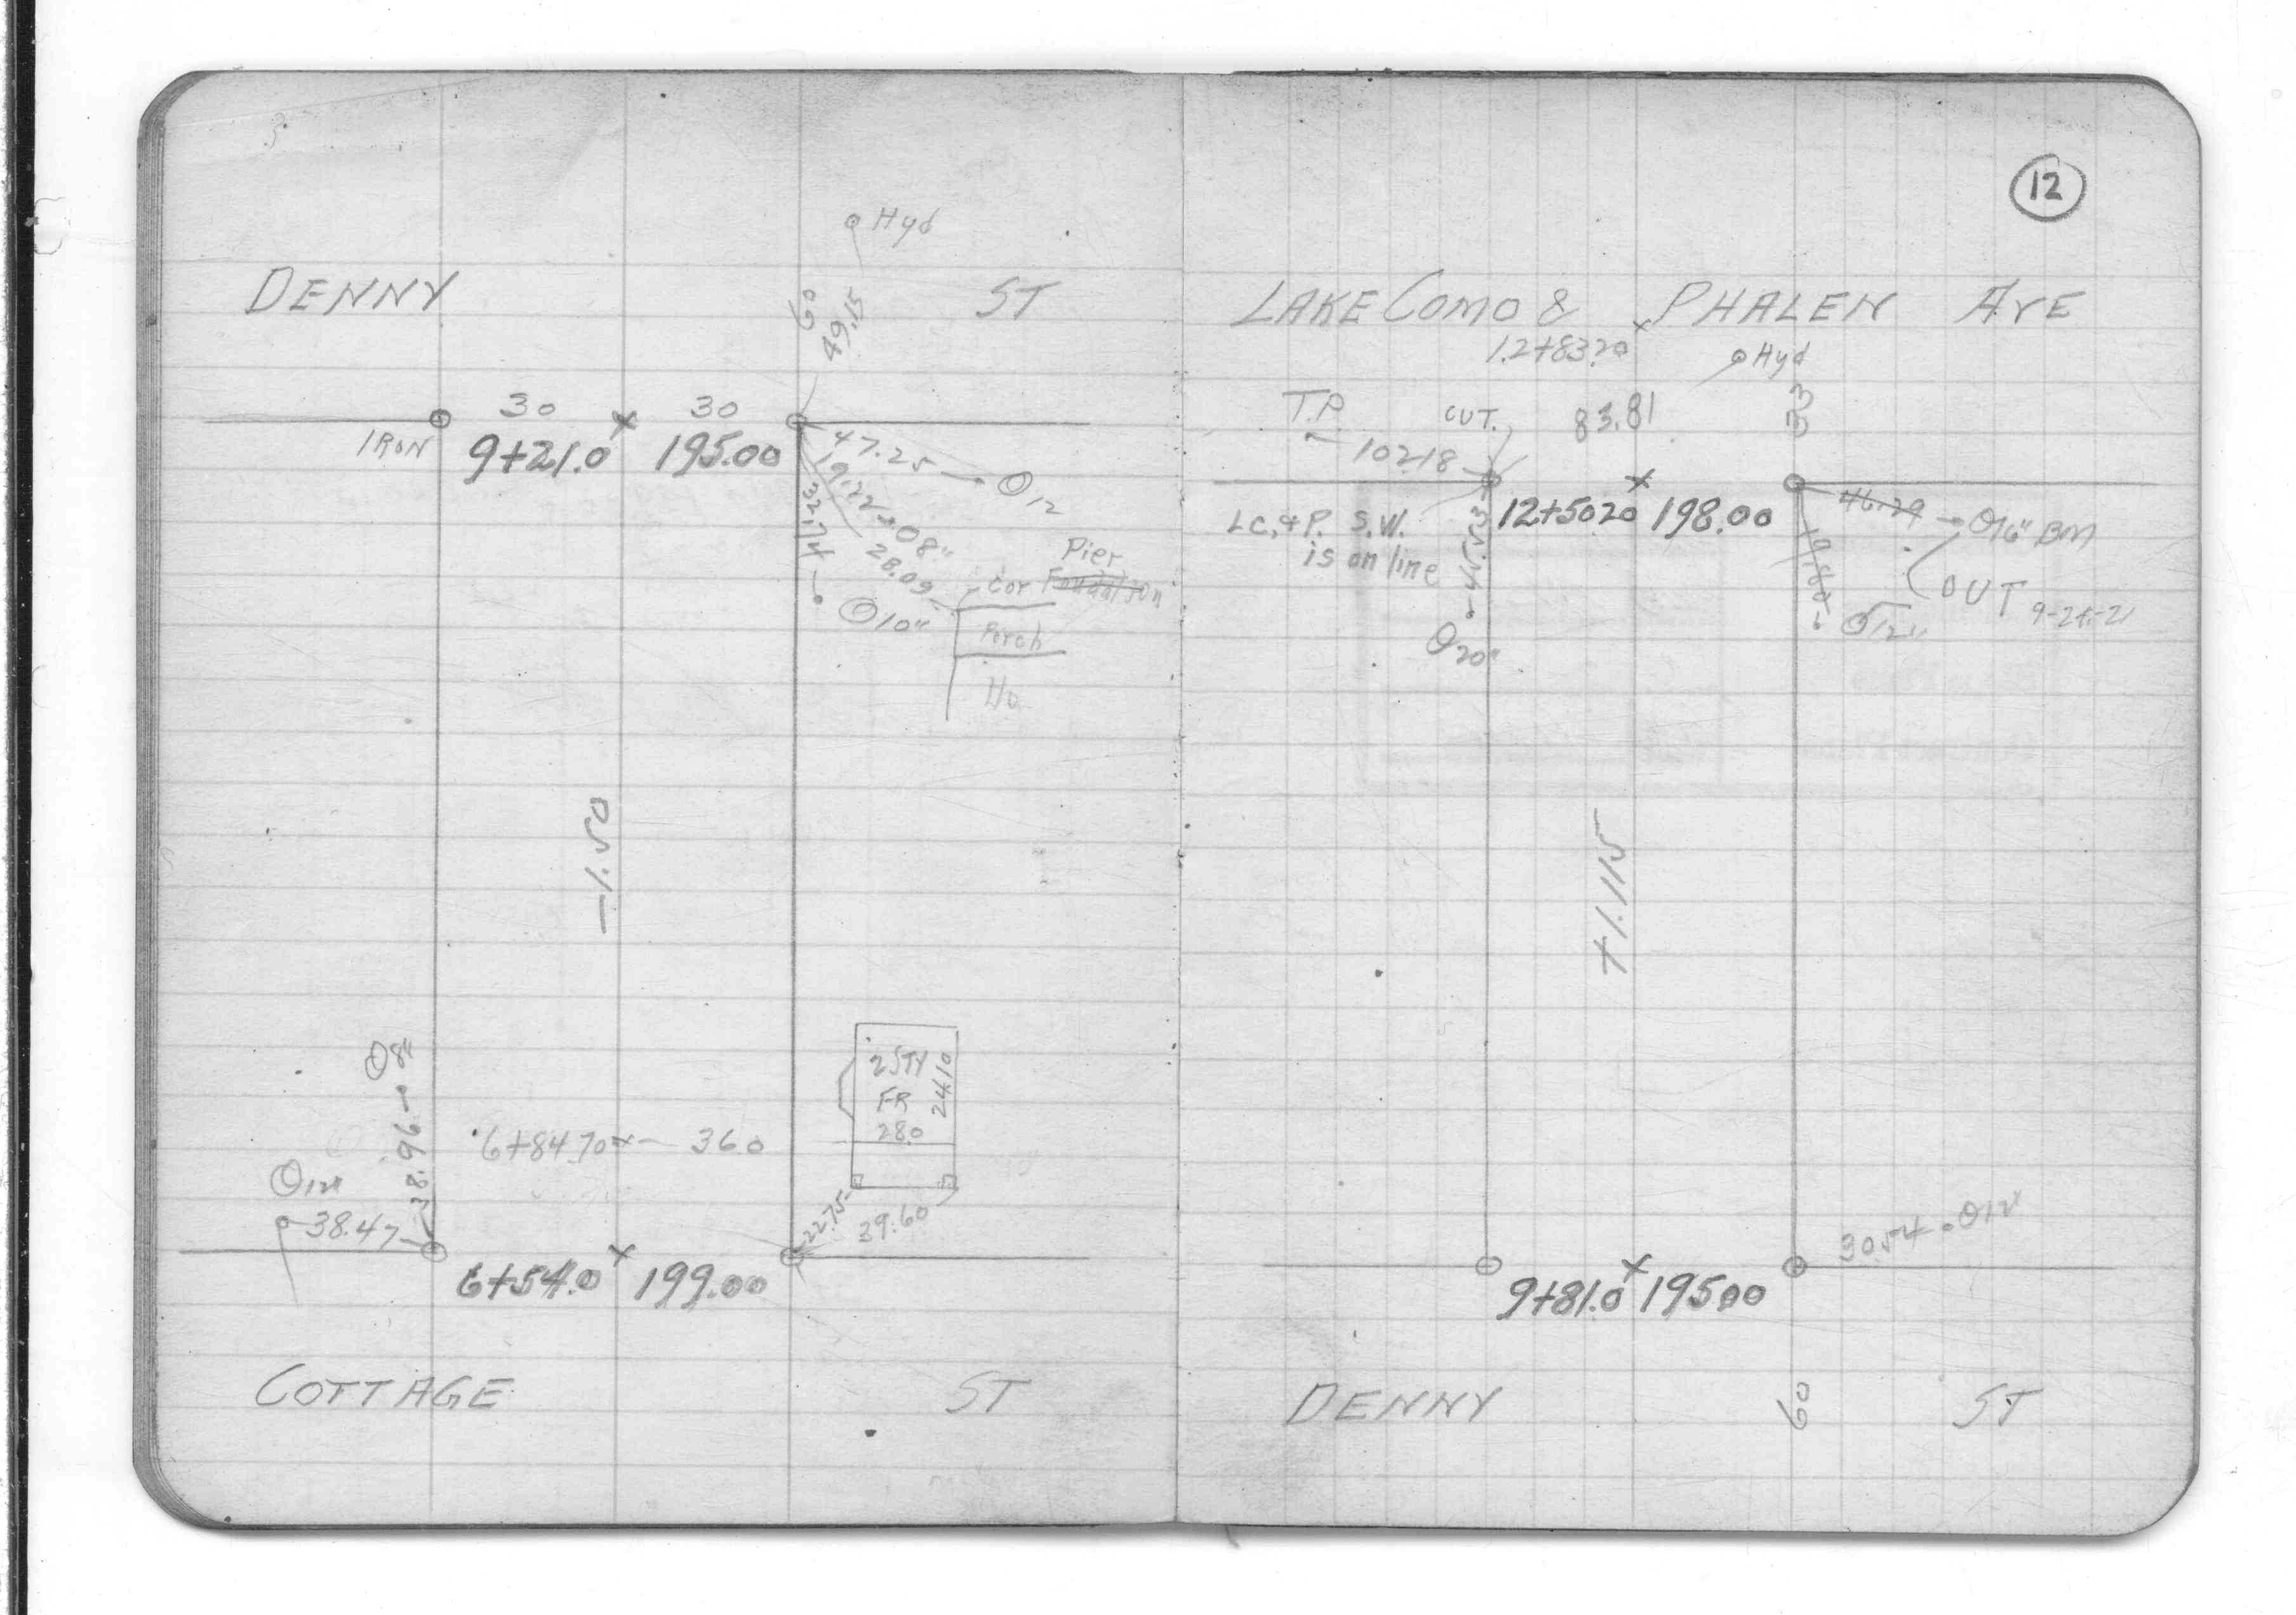 Hyd
DENNY ST
60
49.15
30 30
IRON 9+21.0 195.00
47.25 12
19.22 8"
32.74
28.09
10"
Pier
Cor Foundation
Porch
Ho
-1.50
8"
38.96
2 STY
FR
28.0
24.10
6+84.70 36.0
12"
38.47
22.75
39.60
6+54.0 199.00
COTTAGE ST
12
LAKE COMO & PHALEN AVE
12+83.20
Hyd
33
T.P. CUT. 83.81
102.18
12+50.20 198.00
L.C. & P. S.W.
is on line
45.53
20"
46.29 16" BM
OUT 9-24-21
12"
+1.115
30.54 12"
9+81.0 195.00
DENNY 60 ST